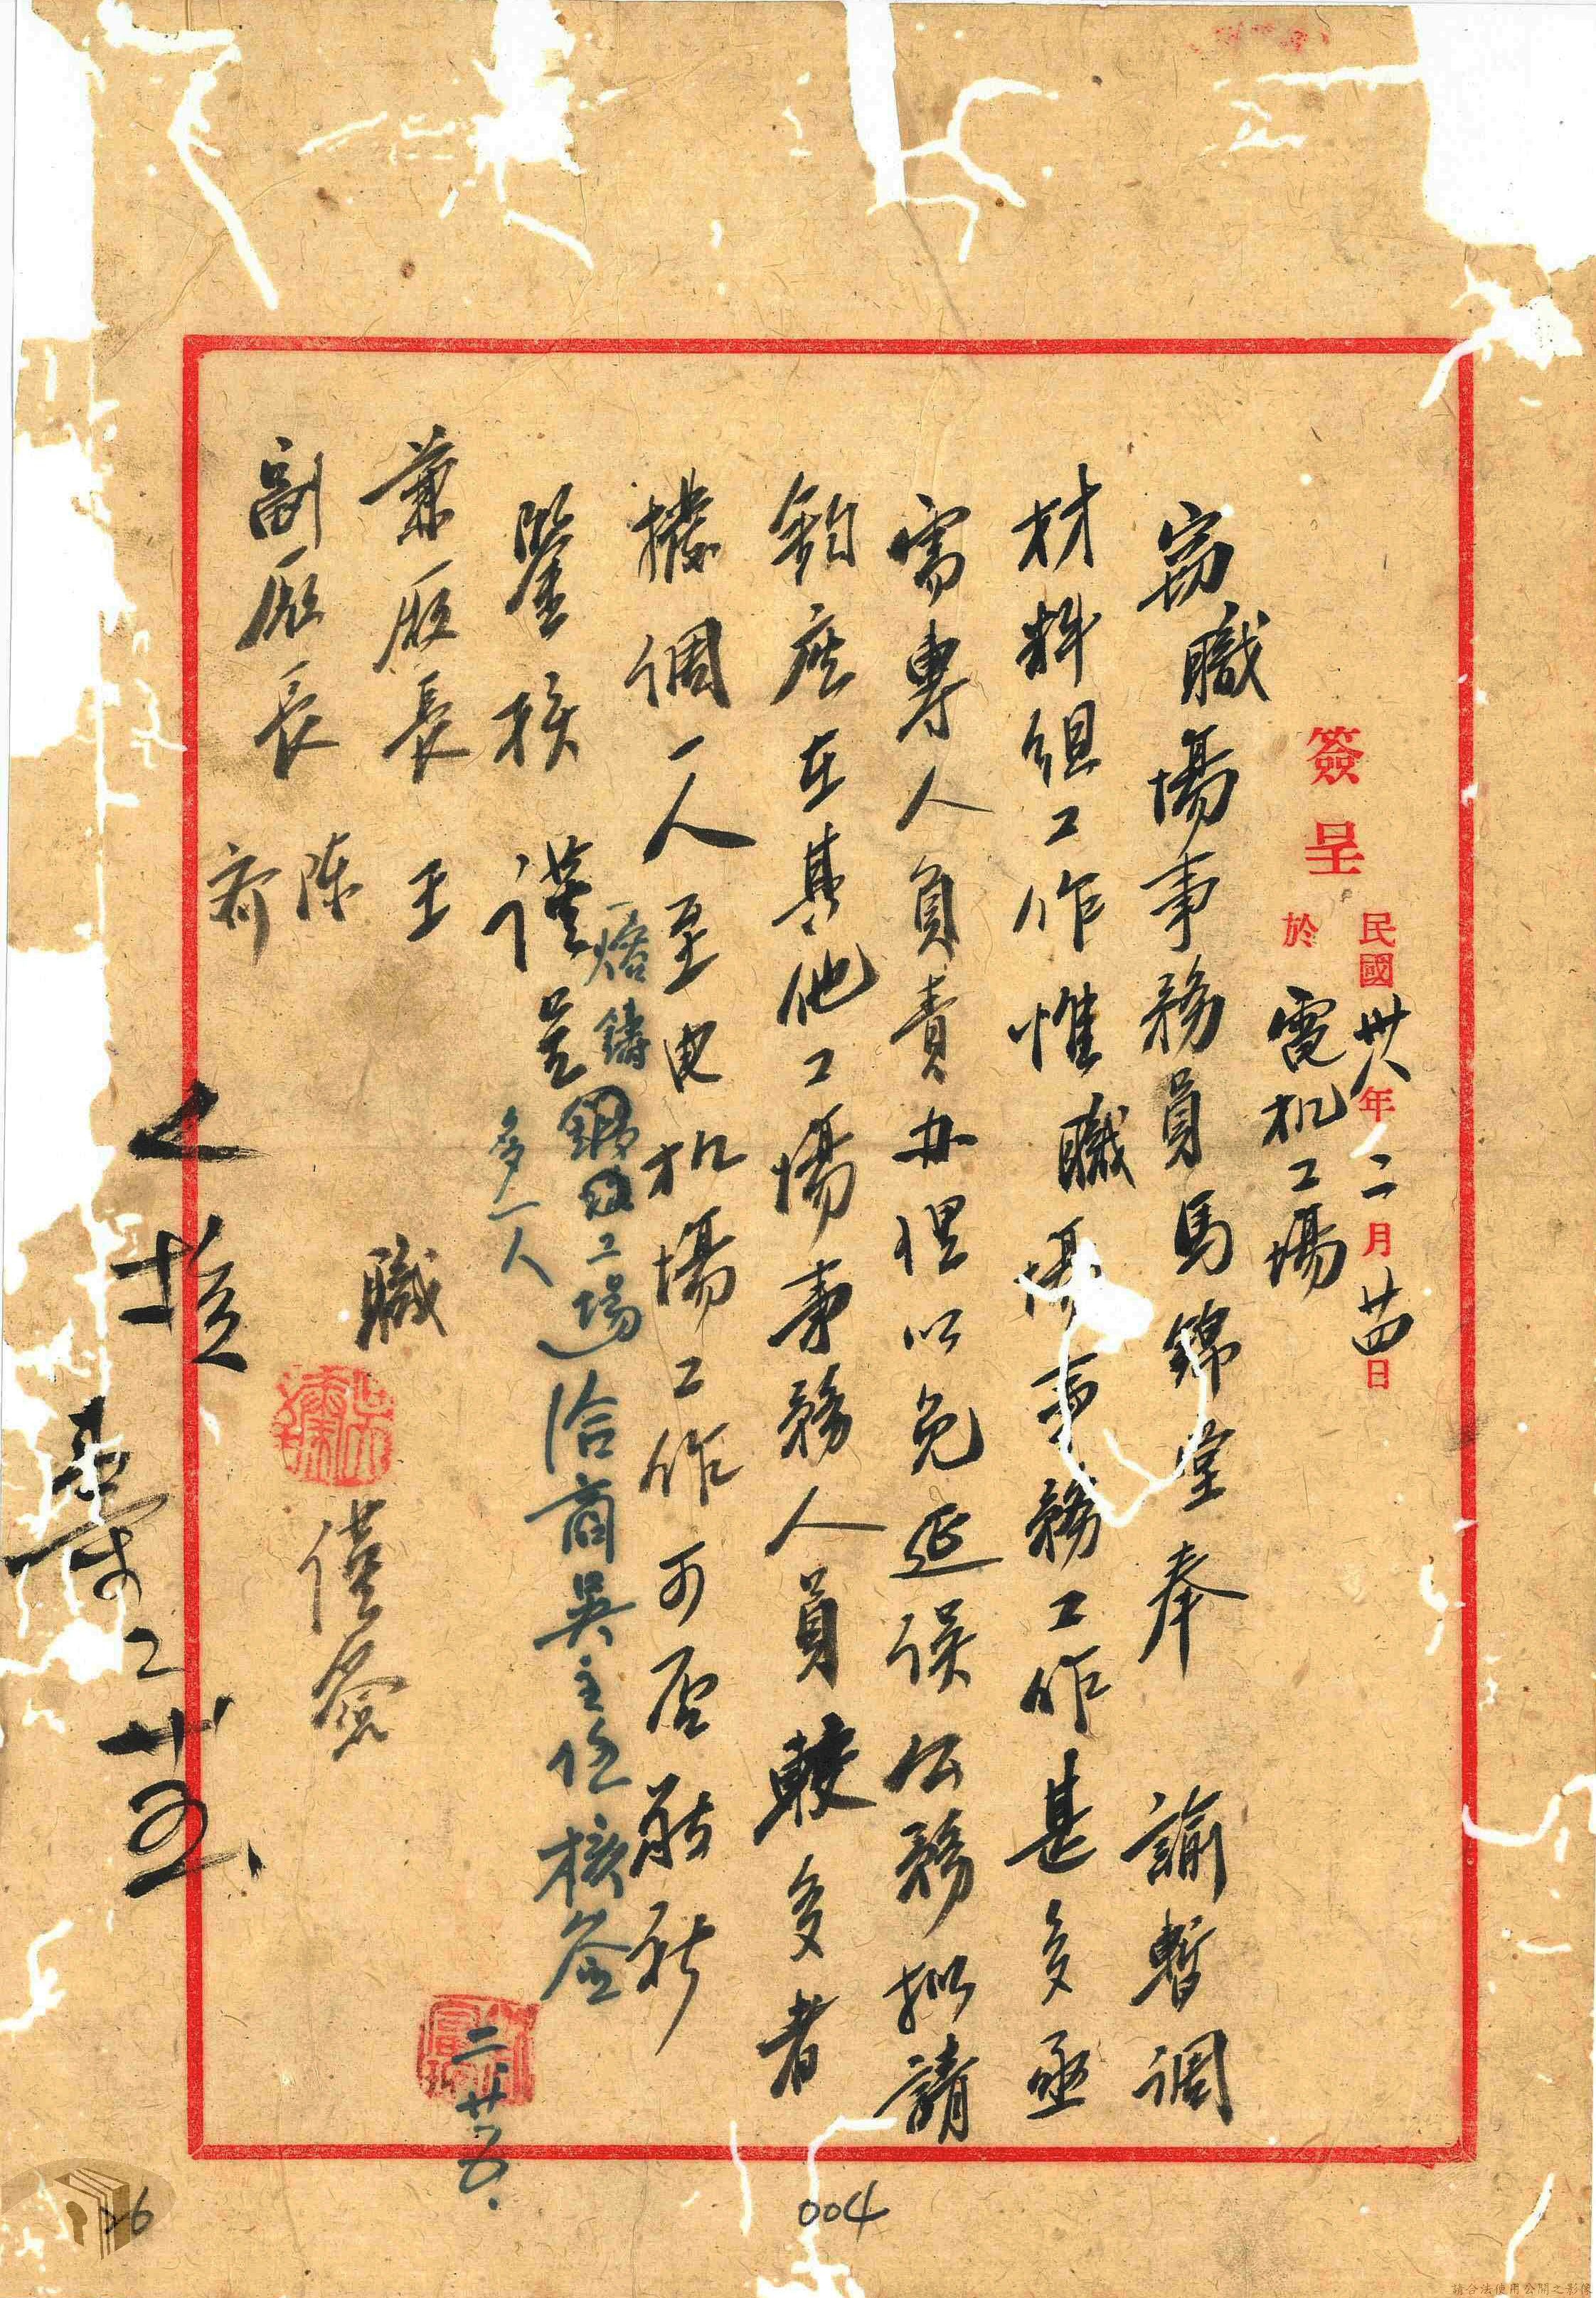 簽呈
民國卅八年二月廿四日
於電机工場
竊職場事務員馬錦堂奉 諭暫調
材料組工作惟職場事務工作甚多亟
需專人負責办理以免延誤公務拟請
鈞座在其他工場事務人員較多者
撥調一人至电机場工作可否敬祈
鑒核 謹呈
兼廠長 王
副廠長 陳
齊
職 謹簽
熔鑄鍛工場
多一人
洽商吳主任核簽
二.廿五.
二 廿五
004
26
請合法使用公開之影像